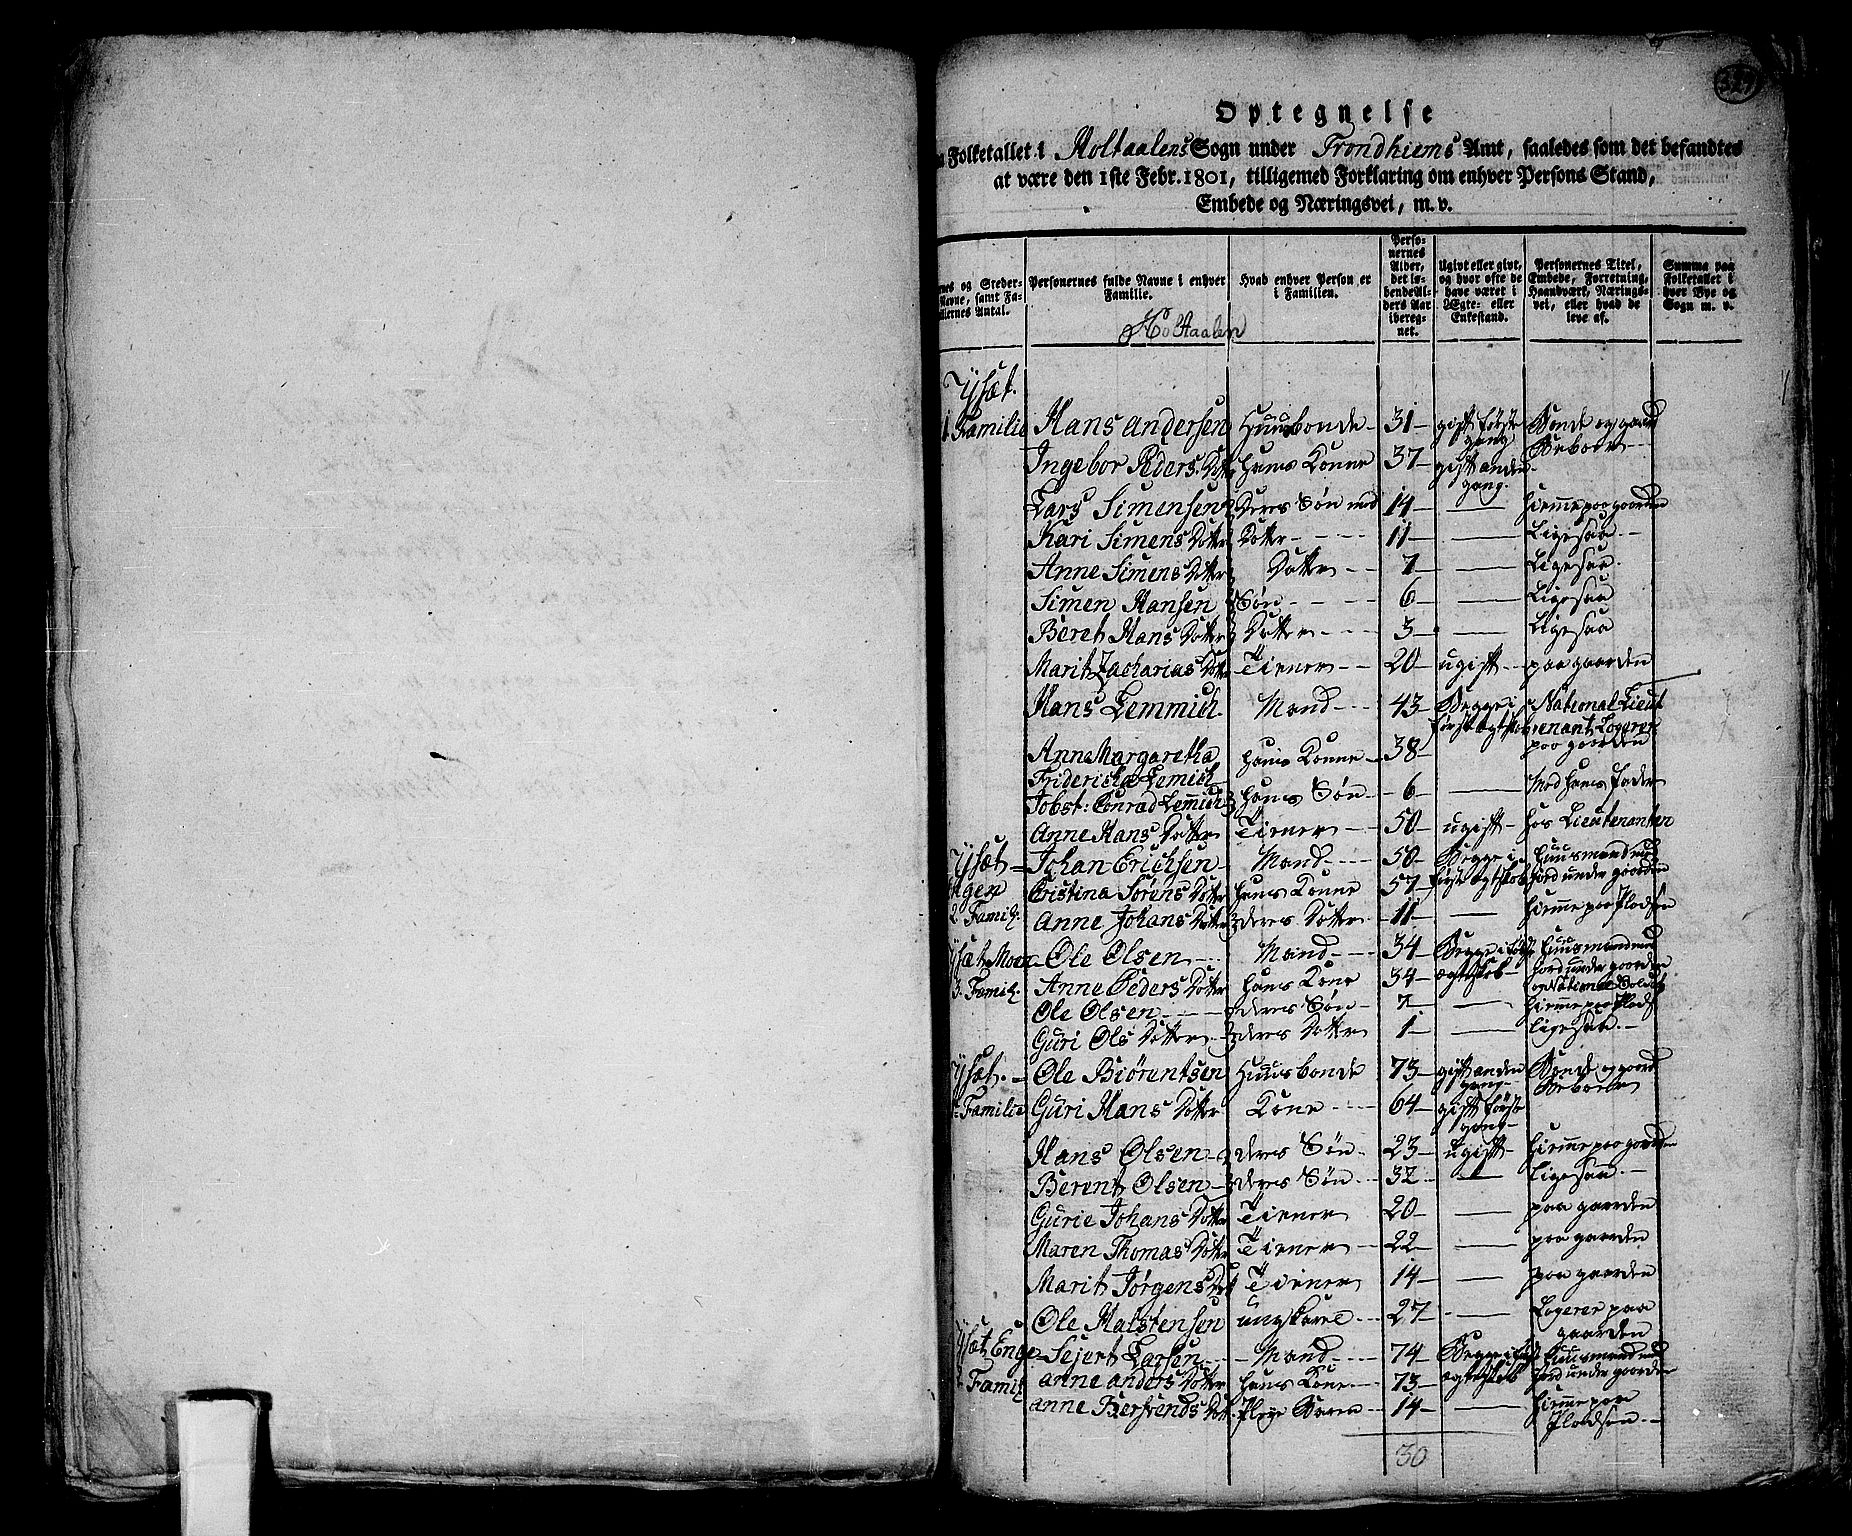 Optegnelse
Folketallet i Holtaalens Sogn under Trondhiems Amt, saaledes som det befandtes
at være den 1ste Febr. 1801, tilligemed Forklaring om enhver Persons Stand,
Embede og Næringsvei, m. v.
og Steder- Navne, samt Fa- Antal.
Personernes fulde Navne i enhver Familie.
Hvad enhver Person er i Familien.
Perso- nernes Alder, det be- Al- ders Aar ibereg- net.
Ugivt eller givt, og hvor ofte de have været i Egte- eller Enkestand.
Personernes Titel, Embede, Forretning, Haandværk, Nærings- vei, eller hvad de leve af.
Summa paa Folketallet i hver Bye og Sogn m. v.
Holtaalen
Ysæt.
1 Familie Hans Andersen Huusbonde 31 gift første gang Bonde og gaard Beboer
Ingebor Peders Dotter hans Konne 37 gift anden gang.
Lars Simensen Deres Søn med 14 hiemme paa gaarden
Kari Simens Dotter Dotter 11 Ligesaa
Anne Simens Dotter Dotter 7 Ligesaa
Simen Hansen Søn 6 Ligesaa
Beret Hans Dotter Dotter 3 Ligesaa
Marit Zacharias Dotter Tiener 20 ugift paa gaarden
Hans Lemmich Mand 43 Begge i første National Lieutenant Logerer paa gaarden
Anne Margaretha hans Konne 38
Fridericha Lemich
Jobst: Conrad Lemmich hans Søn 6 Med hans Fader
Anne Hans Dotter Tiener 50 ugift hos Lieutenanten
Ysæt Johan Erichsen Mand 50 Begge i Huusmand med
Cristina Sørens Dotter hans Konne 57 første jord under gaarden
2 Famil. Anne Johans Dotter deres Dotter 11 hiemme paa Pladsen
Ysæt Moen Ole Olsen Mand 34 Begge i første Huusmand med
3. Famil. Anne Peders Dotter hans Kone 34 ægteskab jord under gaarden og National Soldat
Ole Olsen deres Søn 7 hiemme paa Plads
Guri Ols Dotter deres Dotter 1 ligesaa
Ysæt. Ole Biørentsen Huusbonde 73 gift anden gang Bonde og gaard Beboer
Familie Guri Hans Dotter Kone 64 gift første gang
Hans Olsen deres Søn 23 ugift hiemme paa gaarden
Berent Olsen deres Søn 32 ligesaa
Gurie Johans Dotter Tiener 20 paa gaarden
Maren Thomas Dotter Tiener 22 paa gaarden
Marit Jørgens Dot Tiener 14 paa gaarden
Ole Halstensen ungkarl 27 Logerer paa gaarden
Ysæt Enge Sejert Larsen Mand 74 Begge i første Huusmand med
Famil Anne Anders Dotter hans Kone 73 ægteskab jord under gaarden
Anne Bersvends Dot. Pleye Barn 14 hiemme paa Pladsen
30